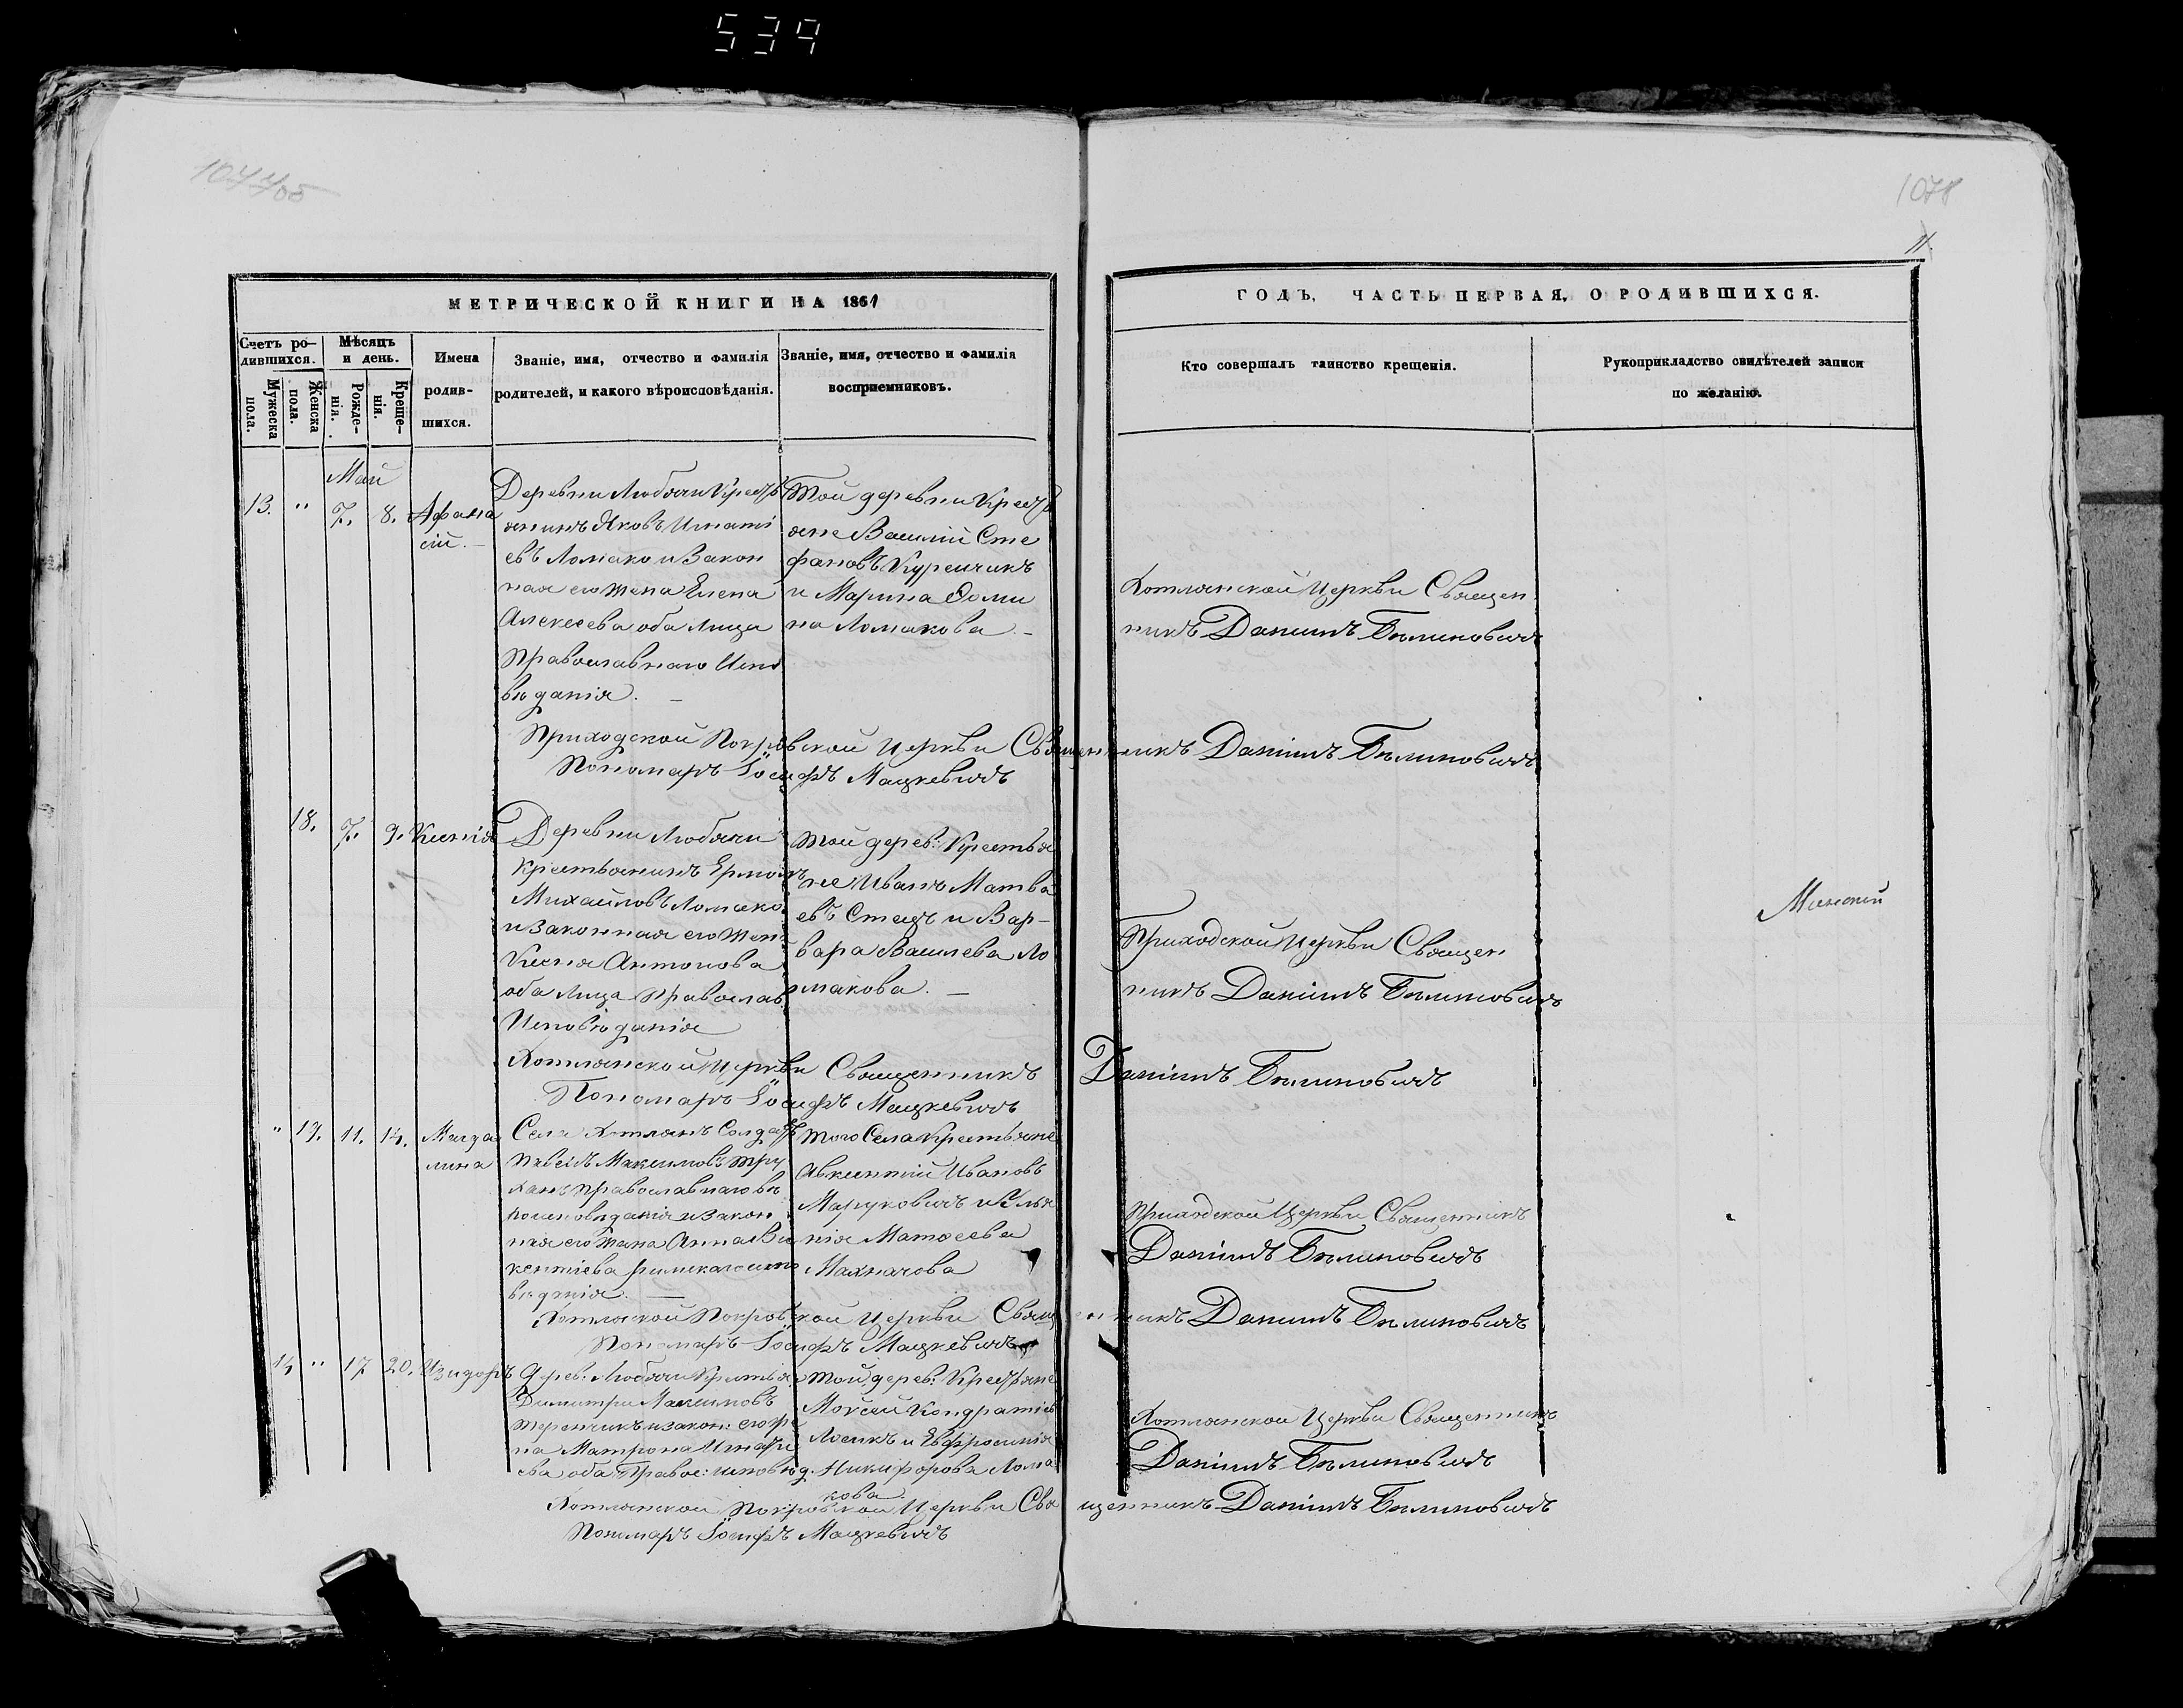 539
1078
11.
МЕТРИЧЕСКОЙ КНИГИ НА 1861
Счетъ ро-
дившихся.
Мужеска
пола.
Женска
пола.
Мѣсяцъ
и день.
Рожде-
нія.
Креще-
нія.
Имена
родив-
шихся.
Званіе, имя, отчество и фамилія
родителей, и какого вѣроисповѣданія.
Званіе, имя, отчество и фамилія
восприемниковъ.
ГОДЪ, ЧАСТЬ ПЕРВАЯ, О РОДИВШИХСЯ.
Кто совершалъ таинство крещенія.
Рукоприкладство свидѣтелей записи
по желанію.
Май
13. " 7. 8. Афана
сій. –
Деревни Любячи Кресть
янинъ Яковъ Игнаті
евъ Ломако и Закон
ная его жена Елена
Алексеева оба Лица
Православнаго Испо
вѣданія. –
Той деревни Кресть
яне Василій Сте
фановъ Куренчикъ
и Марина Ѳоми
на Ломакова. –
Хотлянской Церкви Священ
никъ Даніилъ Былиновичъ
Приходской Покровской Церкви Священникъ Даніилъ Былиновичъ
Пономарь Іосифъ Мацкевичъ
18. 7. 9. Ксенія
Деревни Любячи
Крестьянинъ Ермол
Михайловъ Ломако
и Законная его Жен
Ксенія Антонова
оба Лица Православ
Исповѣданія
Той дерев: Крестья
не Иванъ Матве
евъ Стецъ и Вар-
вара Василева Ло
макова. –
Приходской Церкви Священ
никъ Даніилъ Былиновичъ
Минской
Хотлянской Церкви Священникъ Даніилъ Былиновичъ
Пономарь Іосифъ Мацкевичъ
" 19. 11. 14. Магда
лина
Села Хотлянъ Солдатъ
Павелъ Максимовъ Тру
ханъ Православнаго вѣ
роисповѣданія и Закон
ная его Жена Анна Ви
кентіева римскаго испо
вѣданія. –
Того Села Крестьяне
Авксентій Ивановъ
Маруковичъ и Улья
нія Матѳеева
Махначова
Приходской Церкви Священникъ
Даніилъ Былиновичъ
Хотлянской Покровской Церкви Священникъ Даніилъ Былиновичъ
Пономарь Іосифъ Мацкевичъ
14 " 17 20. Изидоръ
Дерев: Любячи Крестья
Димитри Максимовъ
Теренчикъ и закон: его же
на Матрона Игнатіе
ева оба Правос: исповѣд.
Той дерев: Крестьяне
Мойсей Кондратіев
Лосикъ и Евфросинія
Никифорова Лома
кова.
Хотлянской Церкви Священникъ
Даніилъ Былиновичъ
Хотлянской Покровской Церкви Священникъ Даніилъ Былиновичъ
Пономарь Іосифъ Мацкевичъ